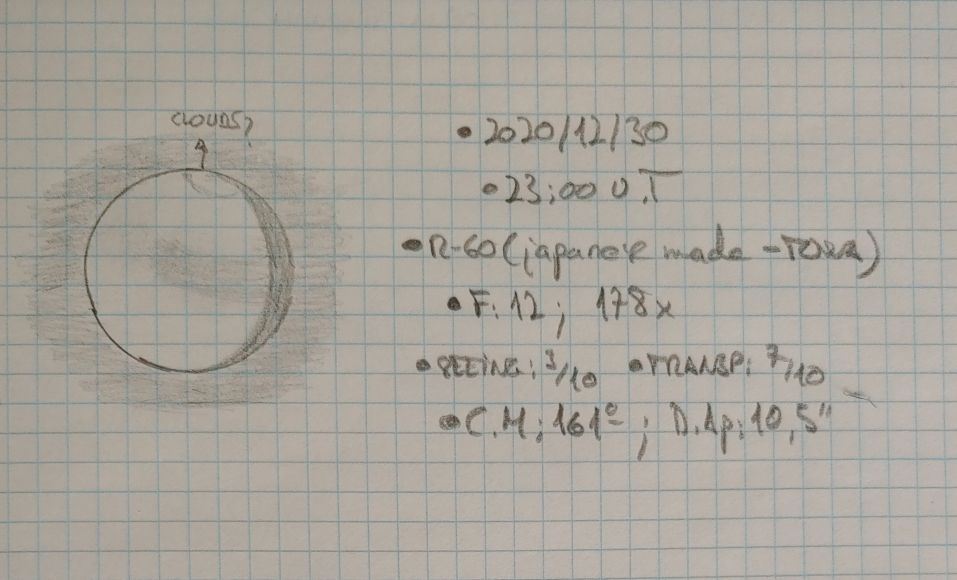 CLOUDS?
• 2020/12/30
• 23:00 U.T
• R-60 (japanese made - TOWA)
• F: 12; 178x
• SEEING: 3/10 • TRANSP: 7/10
• C.M: 161º; D.Ap: 10,5"